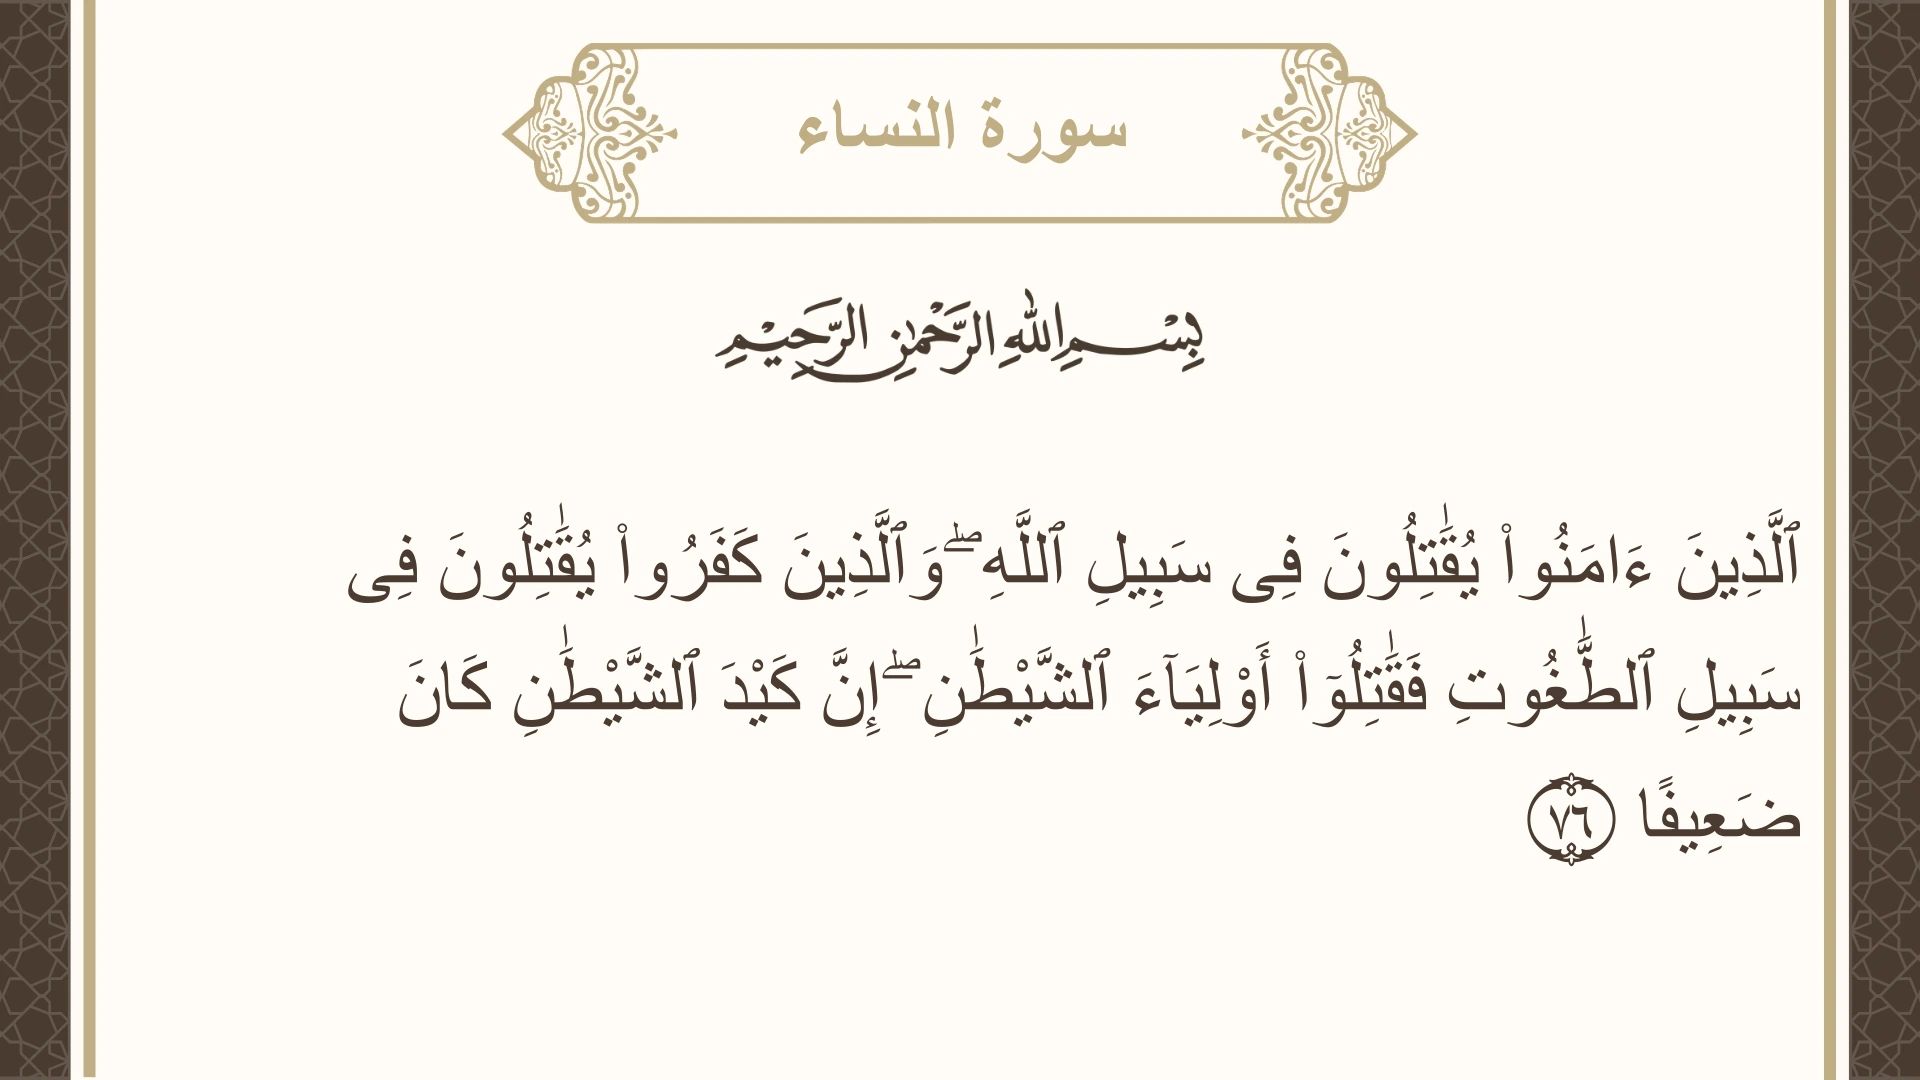 سورة النساء
بِسْمِ اللهِ الرَّحْمٰنِ الرَّحِيْمِ
ٱلَّذِينَ ءَامَنُوا۟ يُقَٰتِلُونَ فِى سَبِيلِ ٱللَّهِ ۖ وَٱلَّذِينَ كَفَرُوا۟ يُقَٰتِلُونَ فِى
سَبِيلِ ٱلطَّٰغُوتِ فَقَٰتِلُوٓا۟ أَوْلِيَآءَ ٱلشَّيْطَٰنِ ۖ إِنَّ كَيْدَ ٱلشَّيْطَٰنِ كَانَ
ضَعِيفًا ٧٦